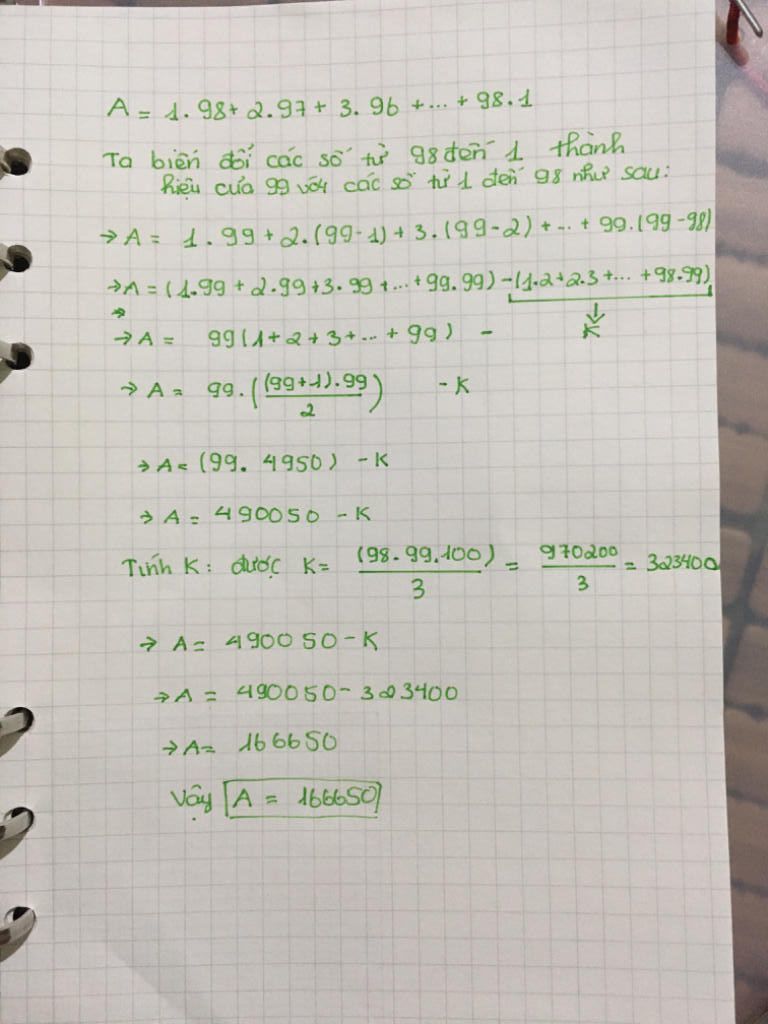 A = 1.98 + 2.97 + 3.96 + ... + 98.1
Ta biến đổi các số từ 98 đến 1 thành
hiệu của 99 với các số từ 1 đến 98 như sau:
→ A = 1.99 + 2.(99-1) + 3.(99-2) + ... + 99.(99-98)
→ A = (1.99 + 2.99 + 3.99 + ... + 99.99) - (1.2 + 2.3 + ... + 98.99)
→ A = 99(1 + 2 + 3 + ... + 99) - K
→ A = 99.((99+1).99/2) - K
→ A = (99. 4950) - K
→ A = 490050 - K
Tính K: được K = (98.99.100)/3 = 970200/3 = 323400
→ A = 490050 - K
→ A = 490050 - 323400
→ A = 166650
Vậy A = 166650